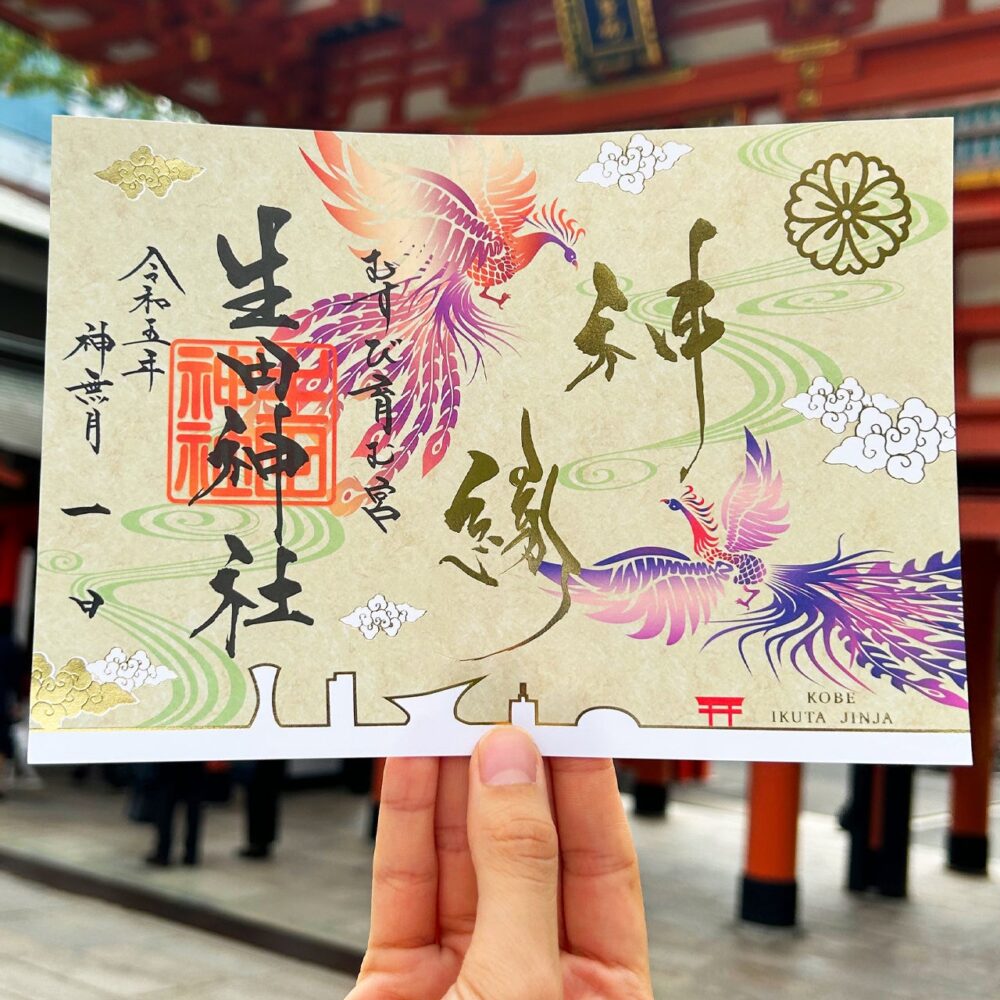 神
縁
むすび育む宮
生田神社
生田
神社
令和五年
神無月
一日
KOBE
IKUTA JINJA